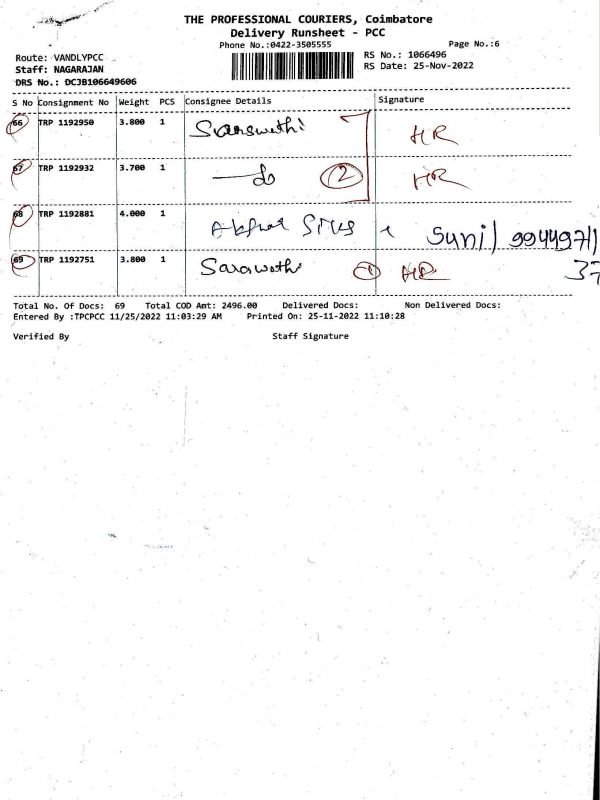 THE PROFESSIONAL COURIERS, Coimbatore
Delivery Runsheet - PCC
Phone No.:0422-3505555
Page No.:6
Route: VANDLYPCC
RS No.: 1066496
Staff: NAGARAJAN
RS Date: 25-Nov-2022
DRS No.: DCJB106649606
S No Consignment No Weight PCS Consignee Details Signature
66 TRP 1192950 3.800 1 Saraswathi HR
67 TRP 1192932 3.700 1 2 HR
68 TRP 1192881 4.000 1 Sunil 99449711
37
69 TRP 1192751 3.800 1 Saraswathi 1 HR
Total No. Of Docs: 69 Total COD Amt: 2496.00 Delivered Docs: Non Delivered Docs:
Entered By :TPCPCC 11/25/2022 11:03:29 AM Printed On: 25-11-2022 11:10:28
Verified By Staff Signature